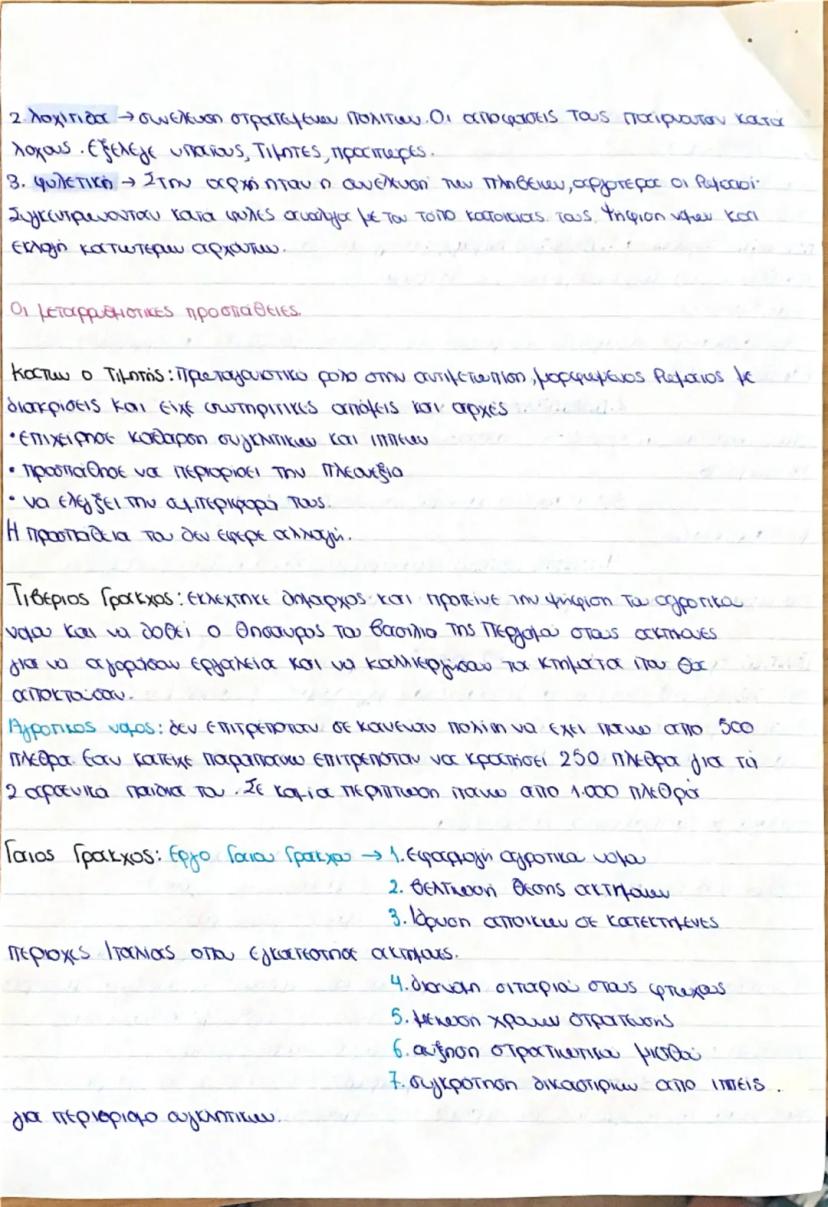 2. λοχίτιδα → συνέλευση στρατευμένων πολιτών. Οι αποφάσεις τους παίρνονταν κατά
λόχους. Εξέλεγε υπάτους, τιμητές, πραίτωρες.
3. φυλετική → Στην αρχή ήταν η συνέλευση των πληβείων, αργότερα οι Ρωμαίοι
συγκεντρώνονταν κατά φυλές ανάλογα με τον τόπο κατοικίας τους. Ψήφιση νόμων και
εκλογή κατώτερων αρχόντων.
Οι μεταρρυθμιστικές προσπάθειες.
Κάτων ο Τιμητής: Πρωταγωνιστικό ρόλο στην αντιμετώπιση, μορφωμένος Ρωμαίος με
διακρίσεις και είχε συντηρητικές απόψεις και αρχές
• επιχείρησε κάθαρση συγκλητικών και ιππέων
• προσπάθησε να περιορίσει την πλεονεξία
• να ελέγξει την συμπεριφορά τους.
Η προσπάθεια του δεν έφερε αλλαγή.
Τιβέριος Γράκχος: εκλέχτηκε δήμαρχος και πρότεινε την ψήφιση του αγροτικού
νόμου και να δοθεί ο θησαυρός του βασιλιά της Περγάμου στους ακτήμονες
για να αγοράσουν εργαλεία και να καλλιεργήσουν τα κτήματα που θα
αποκτούσαν.
Αγροτικός νόμος: δεν επιτρεπόταν σε κανέναν πολίτη να έχει πάνω από 500
πλέθρα. Εάν κατείχε παραπάνω επιτρεπόταν να κρατήσει 250 πλέθρα για τα
2 αρσενικά παιδιά του. Σε καμία περίπτωση πάνω από 1.000 πλέθρα
Γάιος Γράκχος: Έργο Γαίου Γράκχου → 1. Εφαρμογή αγροτικού νόμου
2. βελτίωση θέσης ακτημόνων
3. Ίδρυση αποικιών σε κατεκτημένες
περιοχές Ιταλίας όπου εγκατέστησε ακτήμονες.
4. διανομή σιταριού στους φτωχούς
5. μείωση χρόνου στράτευσης
6. αύξηση στρατιωτικού μισθού
7. συγκρότηση δικαστηρίων από ιππείς
για περιορισμό συγκλητικών.